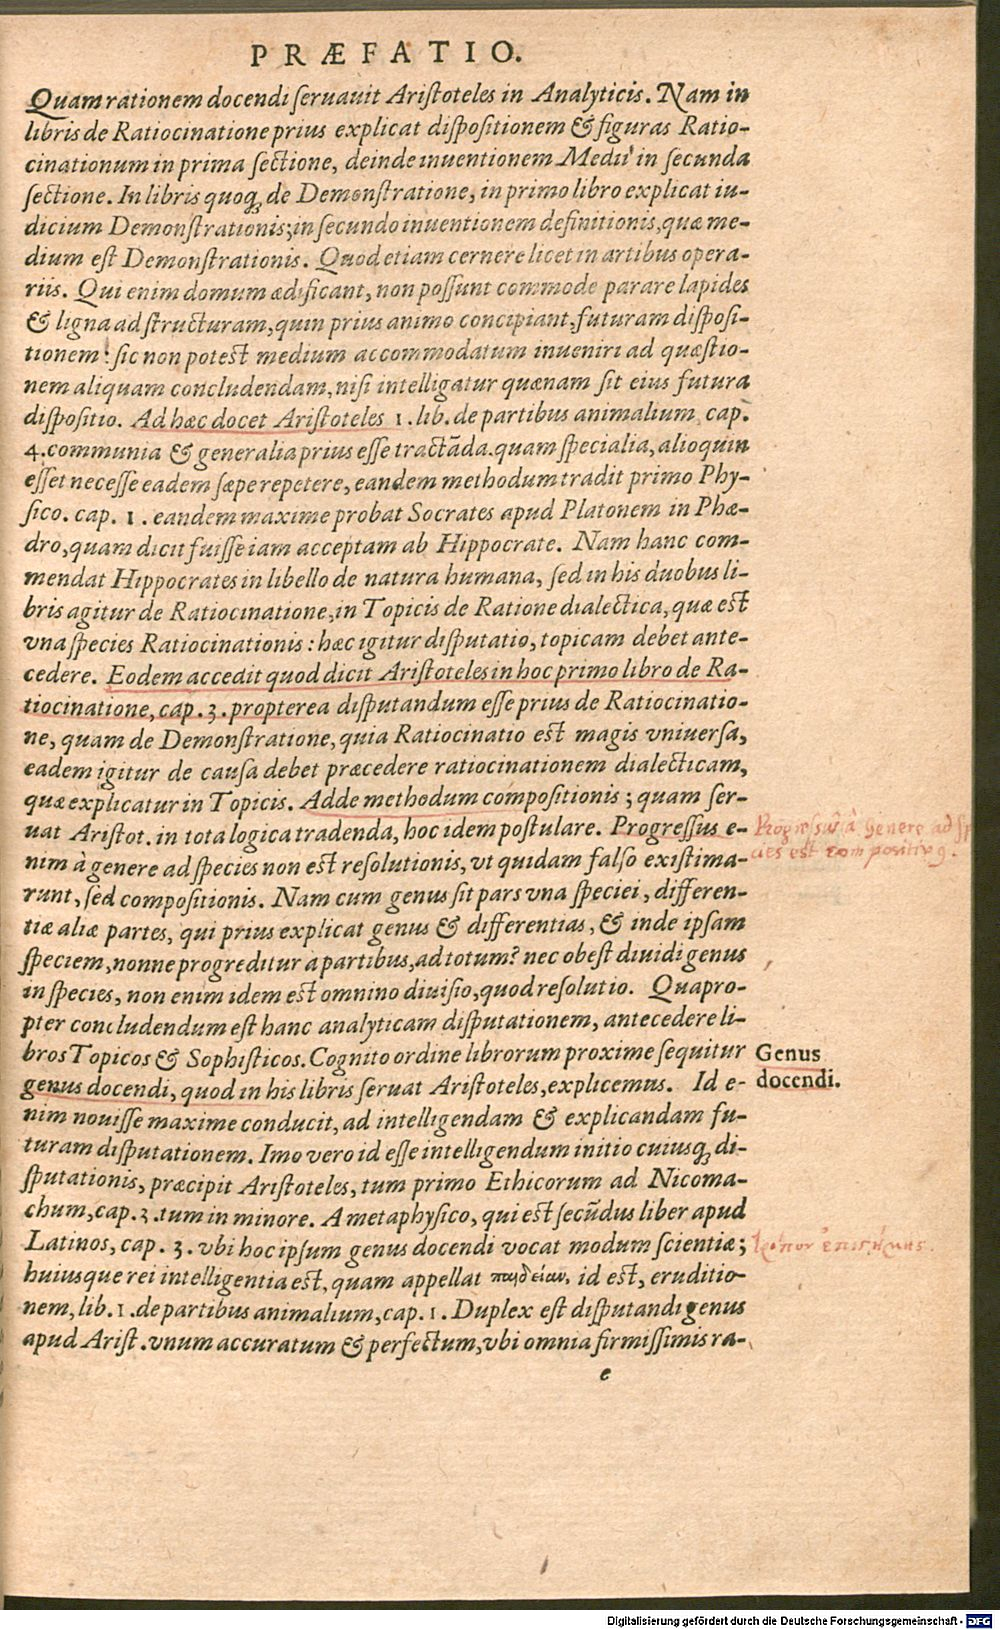 PRÆFATIO.
Quam rationem docendi seruauit Aristoteles in Analyticis. Nam in
libris de Ratiocinatione prius explicat dispositionem & figuras Ratio-
cinationum in prima sectione, deinde inuentionem Medii in secunda
sectione. In libris quoq; de Demonstratione, in primo libro explicat iu-
dicium Demonstrationis; in secundo inuentionem definitionis, quæ me-
dium est Demonstrationis. Quod etiam cernere licet in artibus opera-
riis. Qui enim domum ædificant, non possunt commode parare lapides
& ligna ad structuram, quin prius animo concipiant, futuram disposi-
tionem: sic non potest medium accommodatum inueniri ad quæstio-
nem aliquam concludendam, nisi intelligatur quænam sit eius futura
dispositio. Ad hæc docet Aristoteles 1. lib. de partibus animalium cap.
4. communia & generalia prius esse tractāda. quam specialia, alioquin
esset necesse eadem sæpe repetere, eandem methodum tradit primo Phy-
sico. cap. 1. eandem maxime probat Socrates apud Platonem in Phæ-
dro, quam dicit fuisse iam acceptam ab Hippocrate. Nam hanc com-
mendat Hippocrates in libello de natura humana, sed in his duobus li-
bris agitur de Ratiocinatione, in Topicis de Ratione dialectica, quæ est
vna species Ratiocinationis: hæc igitur disputatio, topicam debet ante-
cedere. Eodem accedit quod dicit Aristoteles in hoc primo libro de Ra-
tiocinatione, cap. 3. propterea disputandum esse prius de Ratiocinatio-
ne, quam de Demonstratione, quia Ratiocinatio est magis vniuersa,
eadem igitur de causa debet præcedere ratiocinationem dialecticam,
quæ explicatur in Topicis. Adde methodum compositionis; quam ser-
uat Aristot. in tota logica tradenda, hoc idem postulare. Progressus e-
nim à genere ad species non est resolutionis, vt quidam falso existima-
runt, sed compositionis. Nam cum genus sit pars vna speciei, differen-
tiæ aliæ partes, qui prius explicat genus & differentias, & inde ipsam
speciem, nonne progreditur a partibus, ad totum? nec obest diuidi genus
in species, non enim idem est omnino diuisio, quod resolutio. Quapro-
pter concludendum est hanc analyticam disputationem, antecedere li-
bros Topicos & Sophisticos. Cognito ordine librorum proxime sequitur
genus docendi, quod in his libris seruat Aristoteles, explicemus. Id e-
nim nouisse maxime conducit, ad intelligendam & explicandam fu-
turam disputationem. Imo vero id esse intelligendum initio cuiusq; di-
sputationis, præcipit Aristoteles, tum primo Ethicorum ad Nicoma-
chum, cap. 3. tum in minore. A metaphysico, qui est secūdus liber apud
Latinos, cap. 3. vbi hoc ipsum genus docendi vocat modum scientiæ;
huiusque rei intelligentia est, quam appellat παιδείαν, id est, eruditio-
nem, lib. 1. de partibus animalium, cap. 1. Duplex est disputandi genus
apud Arist. vnum accuratum & perfectum, vbi omnia firmissimis ra-
e
Progressus à Genere ad sp
cies est compositiuq.
Genus
docendi.
τρόπον ἐπιστήμης.
Digitalisierung gefördert durch die Deutsche Forschungsgemeinschaft - DFG